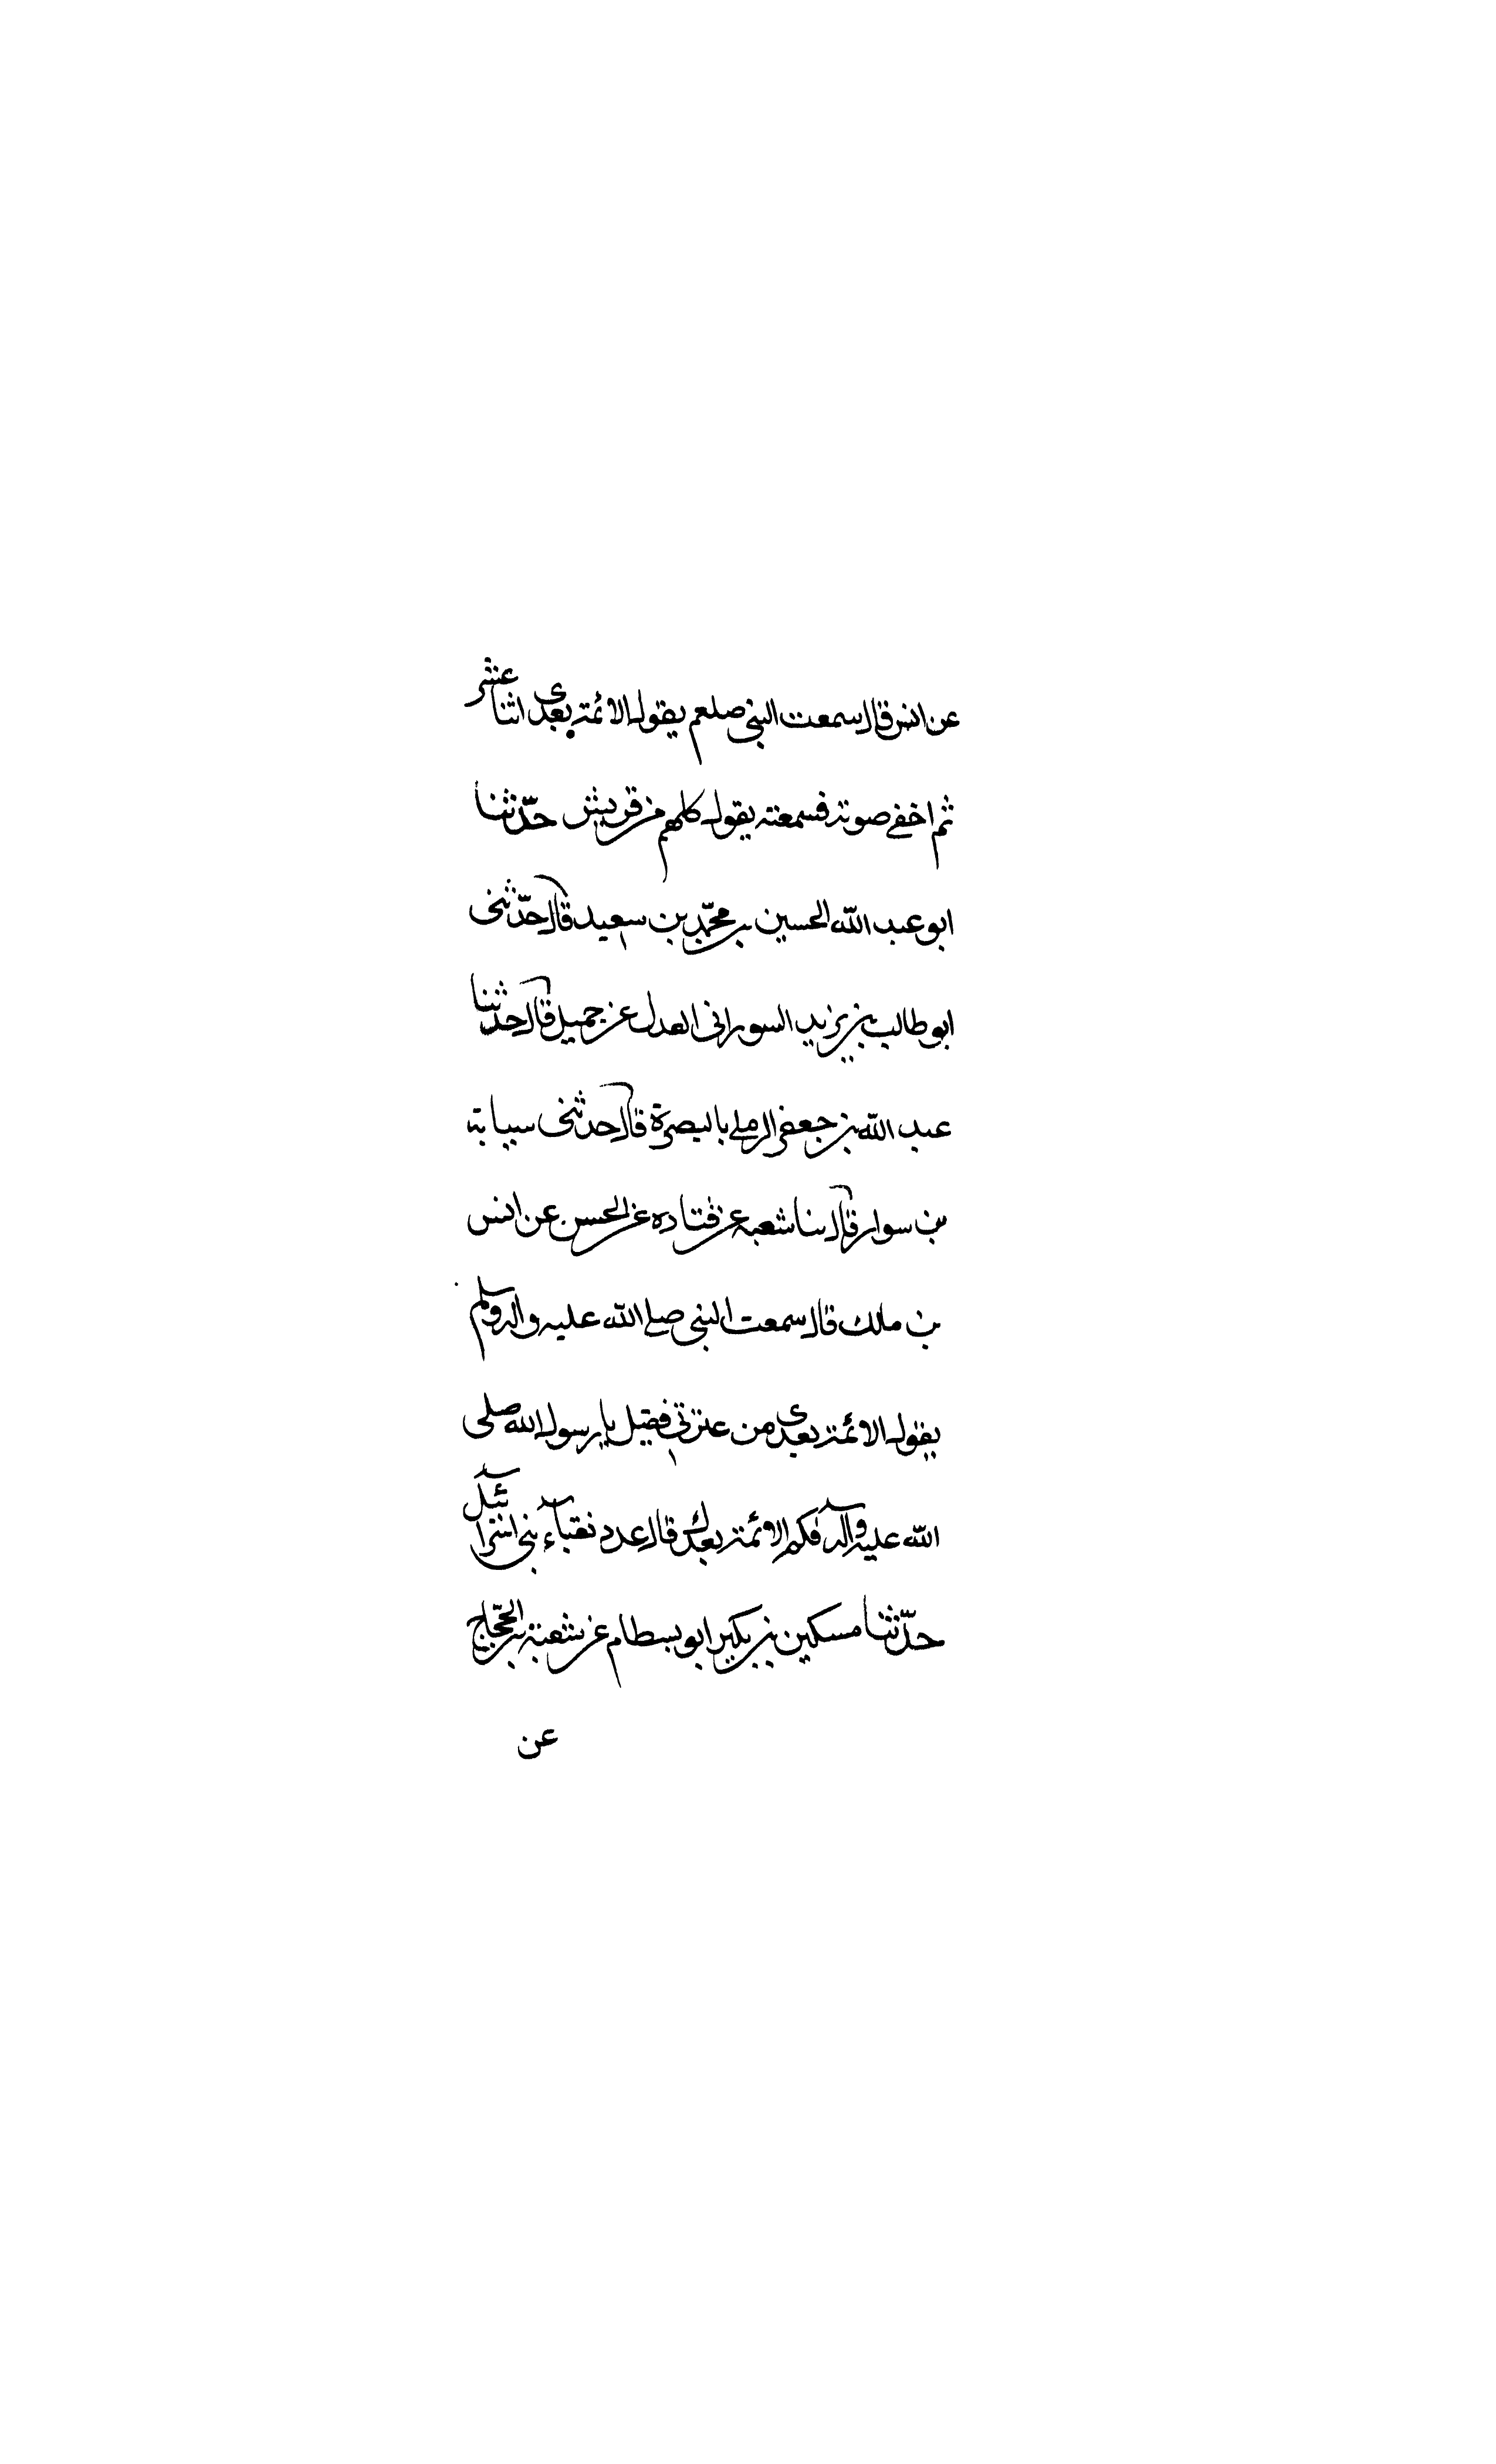 عن انس قال سمعت النبي صلعم يقول الائمة بعدى اثنا عشر
ثم اخفى صوته فسمعته يقول كلهم من قريش حدّثنا
ابو عبد الله الحسين بن محمّد بن سعيد قال حدّثنى
ابو طالب بن يزيد السورانى العدل عن جميل قال حدثنا
عبد الله بن جعفر الرملى بالبصرة قال حدثنى سيبابة
بن سوار قال بنا شعبة عن قتاده عن الحسن عن انس
بن ملك قال سمعت النبى صلى الله عليه واله وسلم
يقول الائمة بعدى من عترتي فقيل يا رسول الله صلى
الله عليه وآله فكم الائمة بعدك قال عدد نقبآء بنى اسرآئيل
حدّثنا مسكين بن بكير ابو بسطام عن شعبة بن الحجّاج
عن